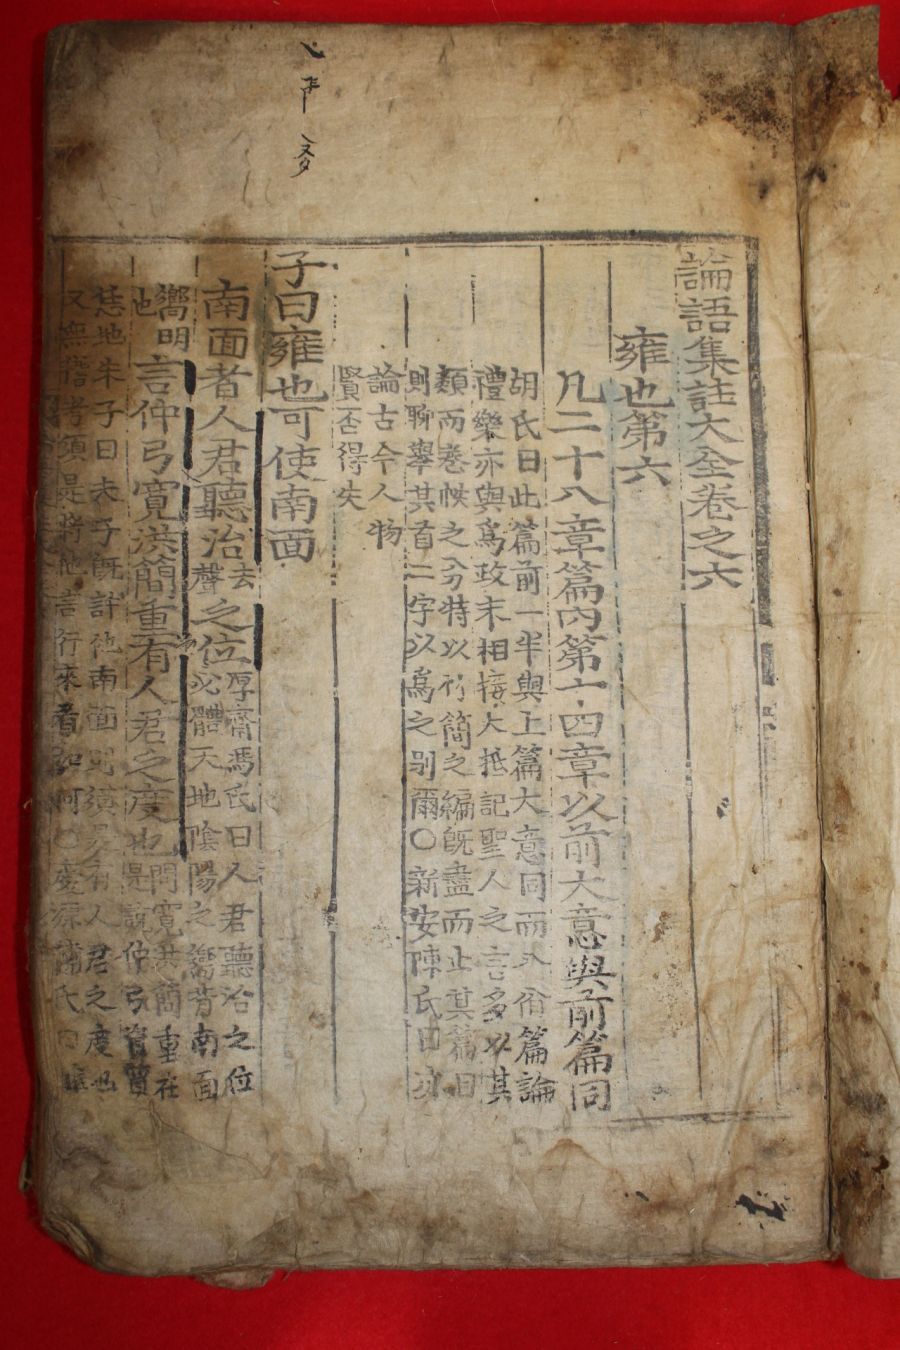 論語集註大全卷之六
雍也第六
凡二十八章篇內第十四章以前大意與前篇同
胡氏曰此篇前一半與上篇大意同而八佾篇論
禮樂亦與爲政末相接大抵記聖人之言多以其
類而卷帙之分特以竹簡之編旣盡而止其篇目
則聊舉其首二字以爲之別爾○新安陳氏曰亦
論古今人物
賢否得失
子曰雍也可使南面
南面者人君聽治去聲之位厚齋馮氏曰人君聽治之位必體天地陰陽之嚮背南面
嚮明也言仲弓寬洪簡重有人君之度也問寬洪簡重在是說仲弓資質
恁地朱子曰夫子旣許他南面則須是有人君之度也
又無稽考須是將他言行來看如何○慶源輔氏曰